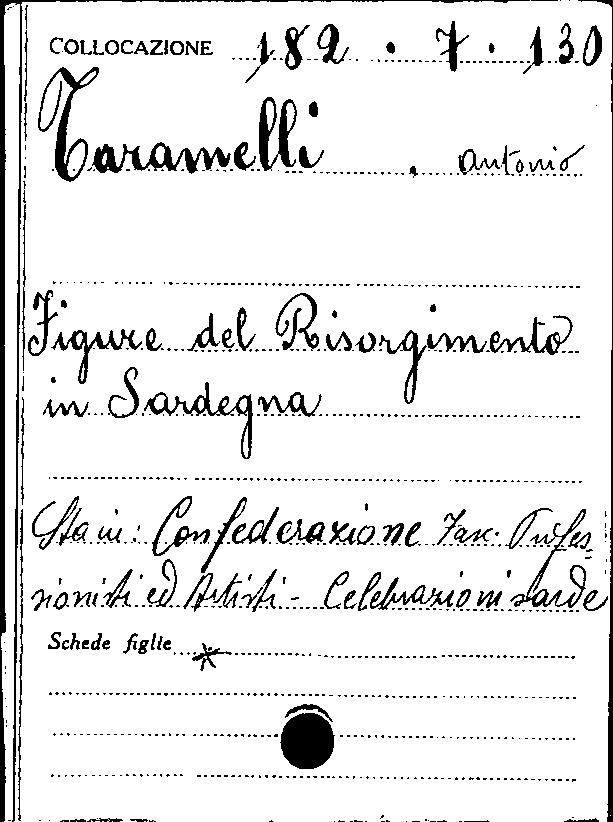 COLLOCAZIONE 182 . 7 . 130
Taramelli, Antonio
Figure del Risorgimento
in Sardegna
Sta in: Confederazione Fasc. Profes=
sionisti ed Artisti - Celebrazioni sarde
Schede figlie *